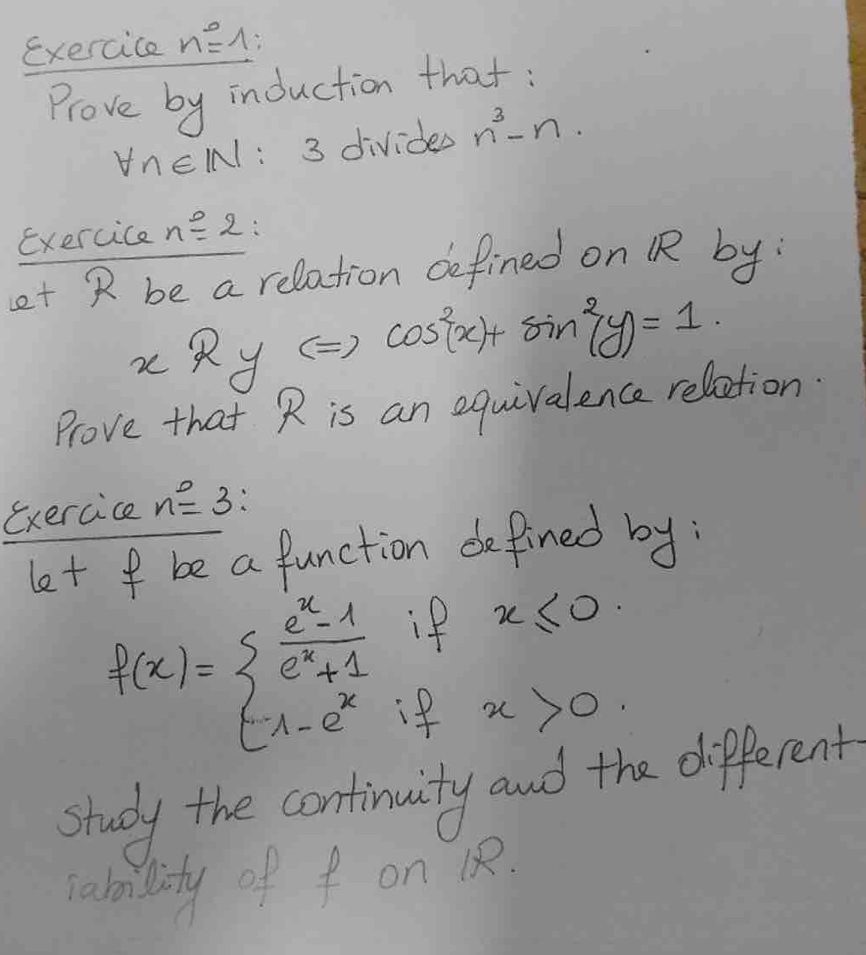 Exercice nº1:
Prove by induction that:
∀n∈ℕ: 3 divides n³-n.
Exercice nº2:
Let R be a relation defined on ℝ by:
x R y ⇔ cos²(x)+ sin²(y)= 1.
Prove that R is an equivalence relation.
Exercice nº3:
let f be a function defined by:
f(x)= { (e^x-1)/(e^x+1) if x⩽0.
1-e^x if x>0.
study the continuity and the different-
iability of f on ℝ.